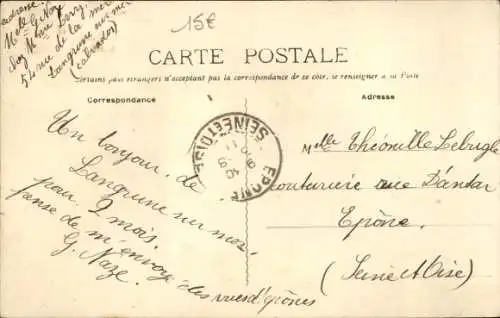 adresse
Melle G. Naze
54 rue de la mer
Langrune sur mer
(Calvados)
15€
CARTE POSTALE
Certains pays étrangers n'acceptant pas la correspondance de ce côté, se renseigner à la Poste
Correspondance
Adresse
Un bonjour de
Langrune sur mer
pour 2 mois.
pense de m'envoyé des vues d'épônes
G. Naze.
EPONE
SEINE ET OISE
Melle Théonille Lebugle
couturière rue
Epône.
(Seine et Oise)